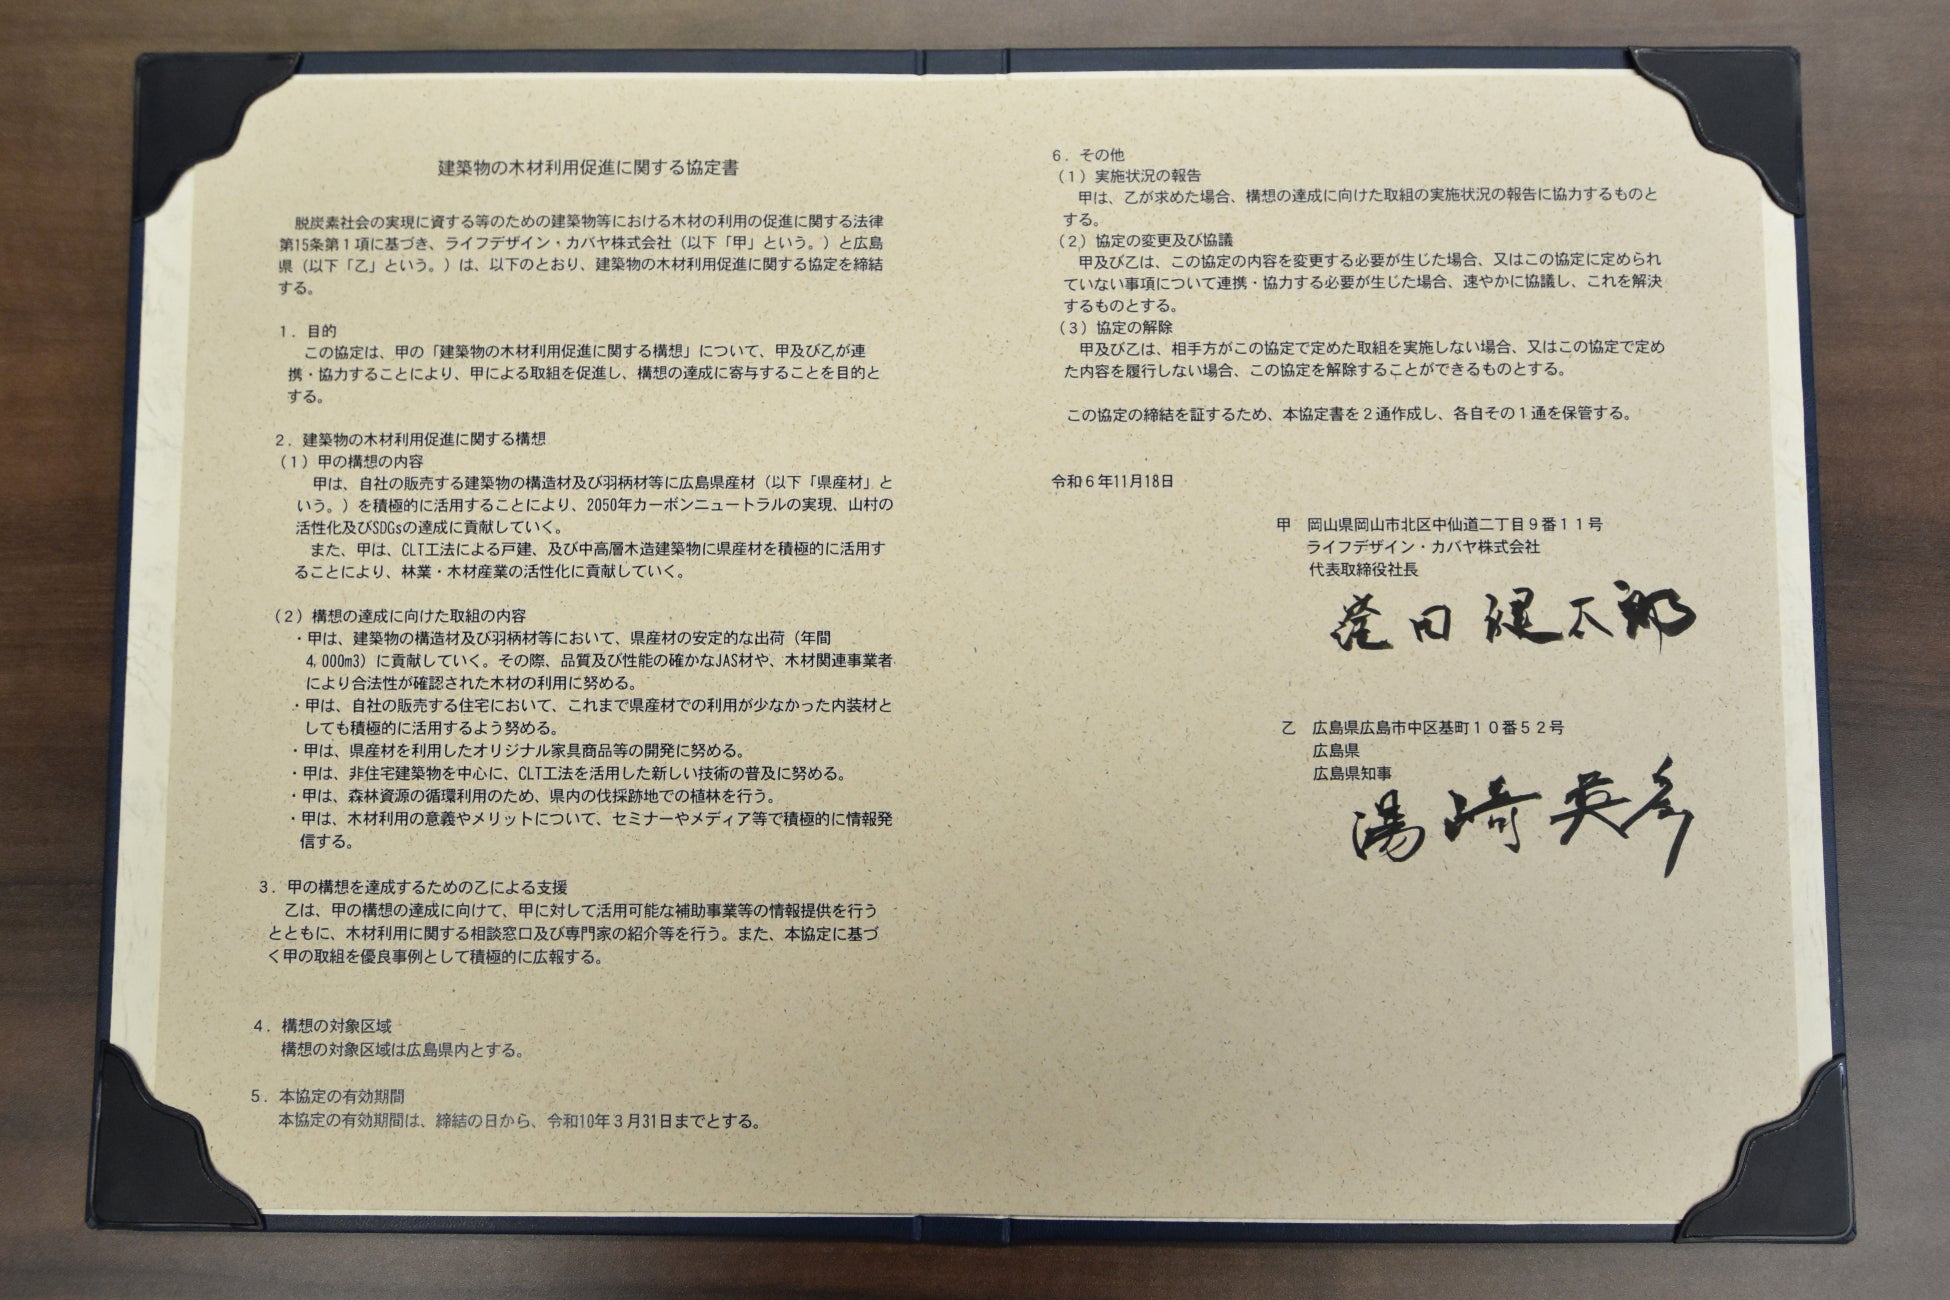 建築物の木材利用促進に関する協定書
脱炭素社会の実現に資する等のための建築物等における木材の利用の促進に関する法律
第15条第１項に基づき、ライフデザイン・カバヤ株式会社（以下「甲」という。）と広島
県（以下「乙」という。）は、以下のとおり、建築物の木材利用促進に関する協定を締結
する。
１．目的
この協定は、甲の「建築物の木材利用促進に関する構想」について、甲及び乙が連
携・協力することにより、甲による取組を促進し、構想の達成に寄与することを目的と
する。
２．建築物の木材利用促進に関する構想
（１）甲の構想の内容
甲は、自社の販売する建築物の構造材及び羽柄材等に広島県産材（以下「県産材」と
いう。）を積極的に活用することにより、2050年カーボンニュートラルの実現、山村の
活性化及びSDGsの達成に貢献していく。
また、甲は、CLT工法による戸建、及び中高層木造建築物に県産材を積極的に活用す
ることにより、林業・木材産業の活性化に貢献していく。
（２）構想の達成に向けた取組の内容
・甲は、建築物の構造材及び羽柄材等において、県産材の安定的な出荷（年間
4,000m3）に貢献していく。その際、品質及び性能の確かなJAS材や、木材関連事業者
により合法性が確認された木材の利用に努める。
・甲は、自社の販売する住宅において、これまで県産材での利用が少なかった内装材と
しても積極的に活用するよう努める。
・甲は、県産材を利用したオリジナル家具商品等の開発に努める。
・甲は、非住宅建築物を中心に、CLT工法を活用した新しい技術の普及に努める。
・甲は、森林資源の循環利用のため、県内の伐採跡地での植林を行う。
・甲は、木材利用の意義やメリットについて、セミナーやメディア等で積極的に情報発
信する。
３．甲の構想を達成するための乙による支援
乙は、甲の構想の達成に向けて、甲に対して活用可能な補助事業等の情報提供を行う
とともに、木材利用に関する相談窓口及び専門家の紹介等を行う。また、本協定に基づ
く甲の取組を優良事例として積極的に広報する。
４．構想の対象区域
構想の対象区域は広島県内とする。
５．本協定の有効期間
本協定の有効期間は、締結の日から、令和10年３月31日までとする。
６．その他
（１）実施状況の報告
甲は、乙が求めた場合、構想の達成に向けた取組の実施状況の報告に協力するものと
する。
（２）協定の変更及び協議
甲及び乙は、この協定の内容を変更する必要が生じた場合、又はこの協定に定められ
ていない事項について連携・協力する必要が生じた場合、速やかに協議し、これを解決
するものとする。
（３）協定の解除
甲及び乙は、相手方がこの協定で定めた取組を実施しない場合、又はこの協定で定め
た内容を履行しない場合、この協定を解除することができるものとする。
この協定の締結を証するため、本協定書を２通作成し、各自その１通を保管する。
令和６年11月18日
甲 岡山県岡山市北区中仙道二丁目９番１１号
ライフデザイン・カバヤ株式会社
代表取締役社長
窪田健太郎
乙 広島県広島市中区基町１０番５２号
広島県
広島県知事
湯﨑英彦